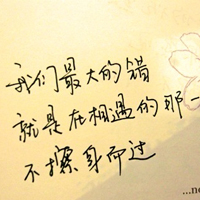 我们最大的错
就是在相遇的那一
不擦身而过
...ne